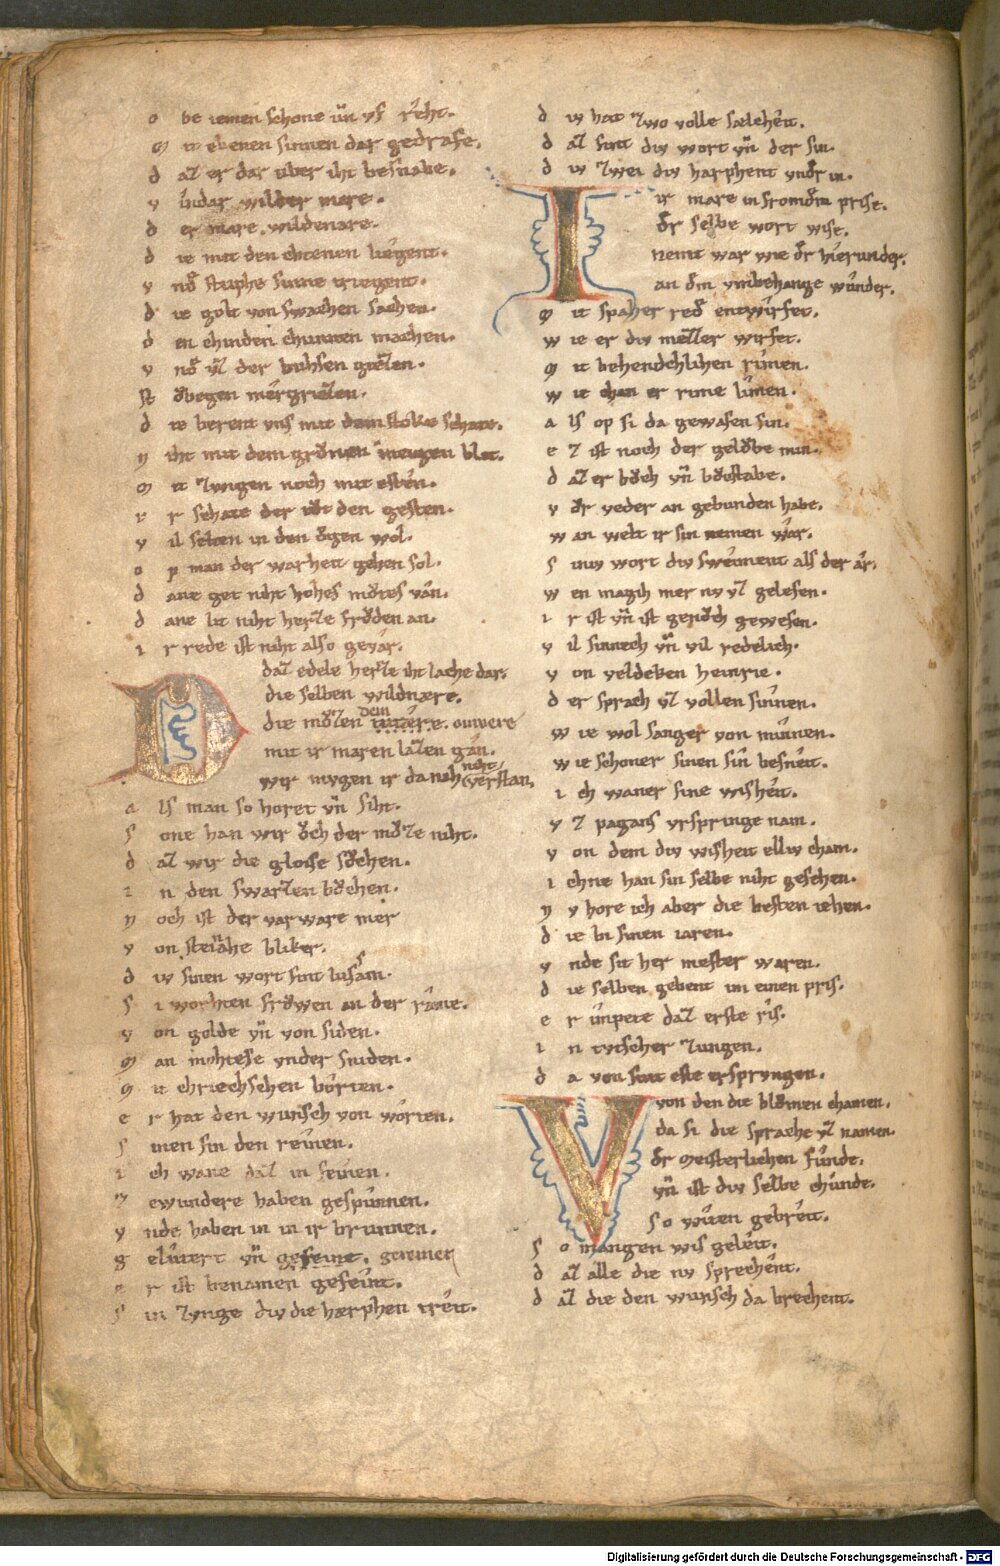 o be iemen schone uñ uf reht.
m it ebenen sinnen dar gedrase.
d aʒ er dar uber iht besnabe.
v indar wilder mære.
d er mare wildenare.
d ie mit den chetenen liegent.
v nð stuphe sinne triegent.
d ie golt von swachen sachen.
d en chinden chunnen machen.
v nð vʒ der buhsen gieʒen.
st ðbegen mergrieʒen.
d ie berent vns mit dem stoke schate.
n iht mit dem grðnen meigen blat.
m it ʒwigen noch mit esten.
i r schate der tðt den gesten.
v il selten in den ðgen wol.
o p man der warheit gehen sol.
d ane get niht hohes mðtes van.
d ane lit niht herʒe frðden an.
i r rede ist niht also gevar.
D daʒ edele herʒe iht lache dar.
die selben wildnære.
die mðʒen dem mære. ouwere
mit ir maren laʒen gan.
wir mvgen ir da nah niht verstan.
a ls man so horet vñ siht.
s one han wir ðch der mðʒe niht.
d aʒ wir die glose sðchen.
i n den swarʒen bðchen.
n och ist der varware mer
v on steiahe bliker.
d iv sinen wort sint lussam.
s i worhten frðwen an der rame.
v on golde vñ von siden.
m an mohtese vnder sniden.
m it chriechschen borten.
e r hat den wunsch von worten.
s inen sin den reinen.
i ch wane daʒ in feinen.
z ewundere haben gespunnen.
v nde haben in in ir brunnen.
g elutert vñ gefeine. gereinet
e r ist benamen gefeint.
s in ʒvnge div die harphen treit.
d iv hat ʒwo volle sælcheit.
d aʒ sint div wort vñ der sin.
d iv ʒwei div harphent vndr in.
I ir mare in fromdm prise.
ðr selbe wort wise.
nemt war wie ðr hierunder.
an ðm vmbehange wunder.
m it spaher reð entwirfet.
w ie er div meʒʒer wirfet.
m it behendchlichen rimen.
w ie chan er rime limen.
a ls op si da gewasen sin.
e ʒ ist noch der gelðbe min.
d aʒ er bðch vñ bðchstabe.
v ðr veder an gebunden habe.
w an welt ir sin nemen war.
s iniv wort div sweiment als der ar.
w en magih mer nv vʒ gelesen.
i r ist vñ ist genðch gewesen.
v il sinnech vñ vil redelich.
v on veldeken heinric.
d er sprach vʒ vollen sinnen.
w ie wol sanger von minnen.
w ie schoner sinen sin besneit.
i ch waner sine wisheit.
v ʒ pagans vrspringe nam.
v on dem div wisheit elliv cham.
i chne han sin selbe niht gesehen.
n v hore ich aber die besten iehen.
d ie bi sinen iaren.
v nde sit her mester waren.
d ie selben gebent im einen pris.
e r inpete daʒ erste ris.
i n tvtscher ʒungen.
d a von sint este ersprvngen.
V von den die blðmen chamen.
da si die sprache vʒ namen.
ðr meisterlichen funde.
vñ ist div selbe chunde.
so witen gebreit.
s o mangen wis geleit.
d aʒ alle die nv sprechent.
d aʒ die den wunsch da brechent.
Digitalisierung gefördert durch die Deutsche Forschungsgemeinschaft - DFG